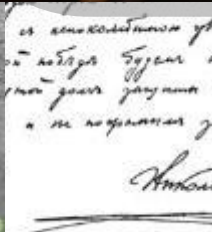 съ непоколѣбимою ув
ой побѣдѣ будемъ
той долгъ защиты
и не посрамимъ з
Николай